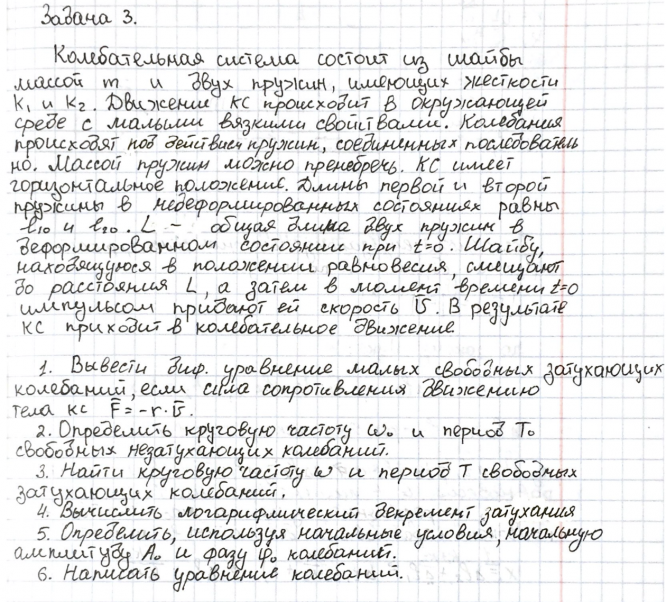 Задача 3.
Колебательная система состоит из шайбы
массой m и двух пружин, имеющих жесткости
k₁ и k₂. Движение КС происходит в окружающей
среде с малыми вязкими свойствами. Колебания
происходят под действием пружин, соединенных последователь
но. Массой пружин можно пренебречь. КС имеет
горизонтальное положение. Длины первой и второй
пружины в недеформированных состояниях равны
l₁₀ и l₂₀. L - общая длина двух пружин в
деформированном состоянии при t=0. Шайбу,
находящуюся в положении равновесия, смещают
до расстояния L, а затем в момент времени t=0
импульсом придают ей скорость v̄. В результате
КС приходит в колебательное движение.
1. Вывести диф. уравнение малых свободных затухающих
колебаний, если сила сопротивления движению
тела КС F̄ = -r·v̄.
2. Определить круговую частоту ω₀ и период T₀
свободных незатухающих колебаний.
3. Найти круговую частоту ω и период T свободных
затухающих колебаний.
4. Вычислить логарифмический декремент затухания
5. Определить, используя начальные условия, начальную
амплитуду A₀ и фазу φ₀ колебаний.
6. Написать уравнение колебаний.